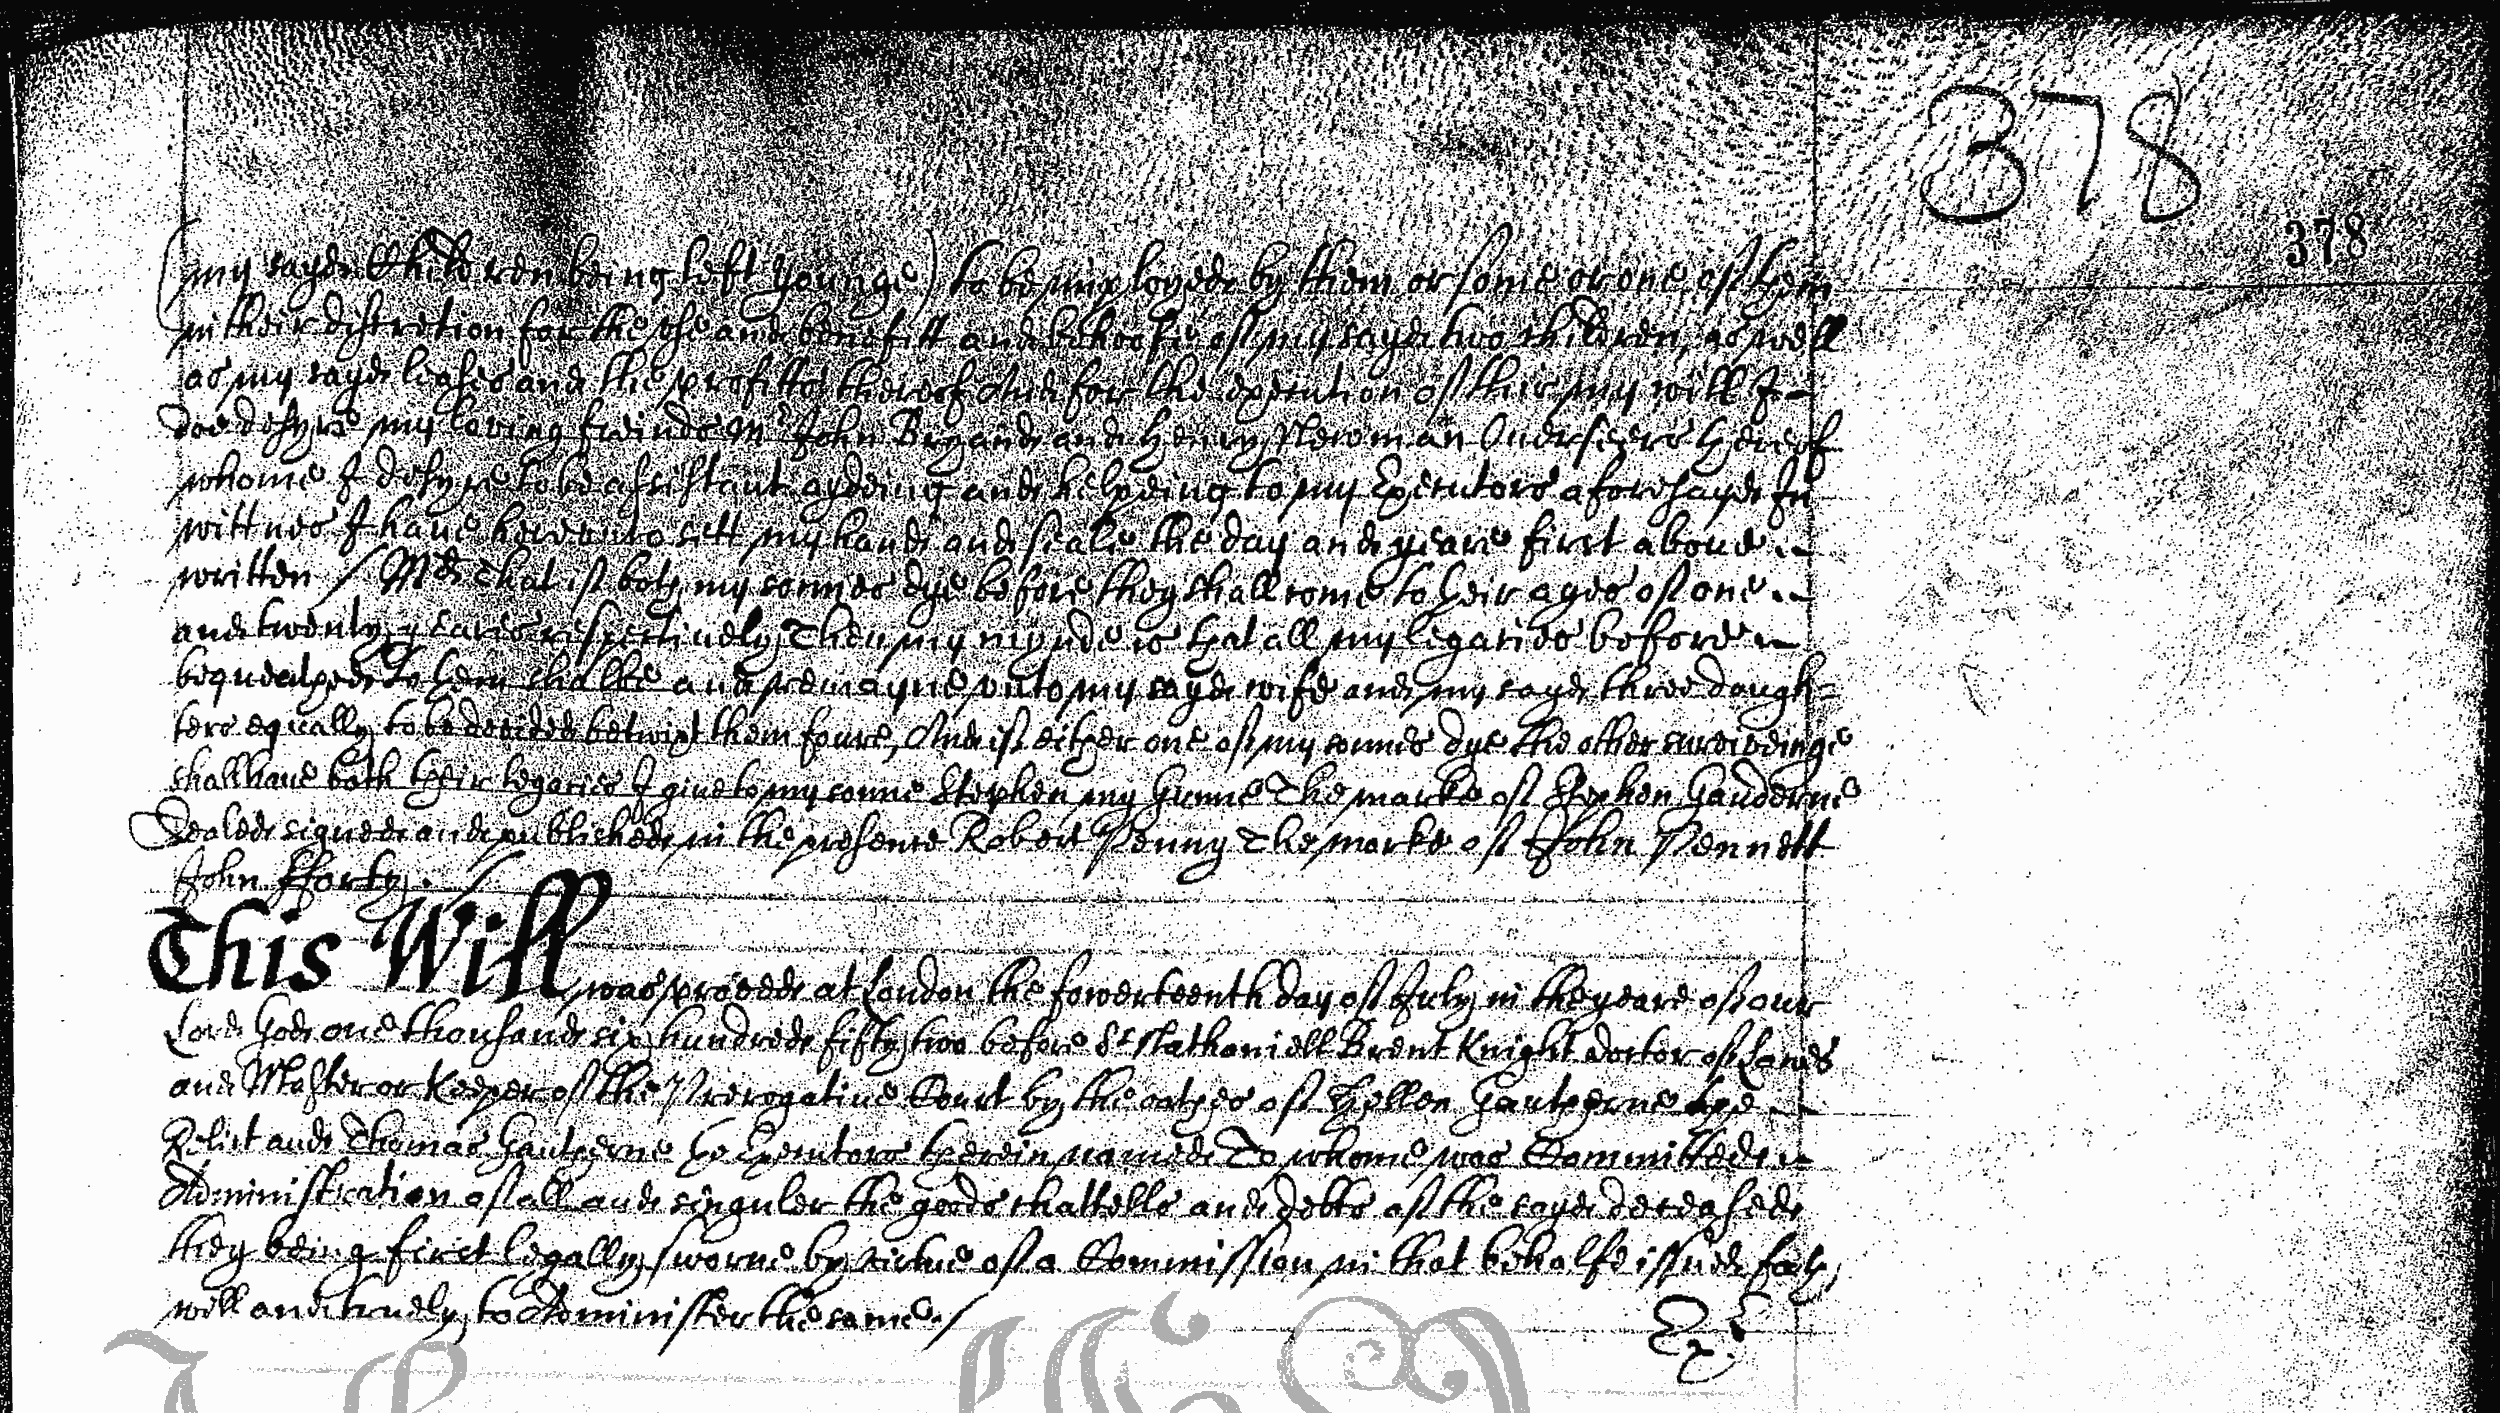 378
378
(my sayde Children being left younge) to be imployede by them or some or one of them
in their discretion for the vse and benefitt and behoofe of my sayde two children, as well
as my sayde leases and the profitts thereof And for the execution of this my will I
doe desyre my loving freinds Mr John Bryande and Henry Newman Overseers hereof
whome I desyre to be assistant ayding and helpeing to my Executors aforesayde In
wittnes I have hereunto sett my hande and seale the day and yeare first above
written / Md That if both my sonnes dye before they shall come to their ages of one
and twenty yeares respectively Then my mynde is that all my legacies before
bequeathede to them shalbe and remayne vnto my sayde wife and my sayde three daugh=
ters equally to be devided betwixt them foure, And if either one of my sonnes dye the other surviveinge
shall have both their legacies I give to my sonne Stephen my Gunne The marke of Stephen Gauderne
Sealede signede and publishede in the presence Robert Penny The marke of John Pennell
John fforty.
This Will was provede at London the fowerteenth day of July in the yeare of our
Lord God one thousande six hundrede fifty two before Sr Nathaniell Brent Knight doctor of Lawes
and Master or Keeper of the Prerogative Court by the oathes of Hellen Gautherne the
Relict and Thomas Gautherne the Executors therein namede To whome was Committede
Administration of all and singuler the goods chattells and debts of the sayde deceasede
they being first legally sworne by vertue of a Commission in that behalfe issued forth
well and truely to Administer the same./